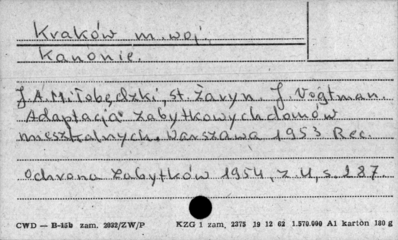 Kraków m. woj.
Kanonie.
J. A. Miłobędzki, St. Żaryn. J. Vogtman.
Adaptacja zabytkowych domów
mieszkalnych. Warszawa 1953 Rec.
Ochrona Zabytków 1954, z. 4, s. 287.
CWD — B-15b zam. 2932/ZW/P KZG 1 zam, 2375 19 12 62 1.570.000 A1 karton 180 g